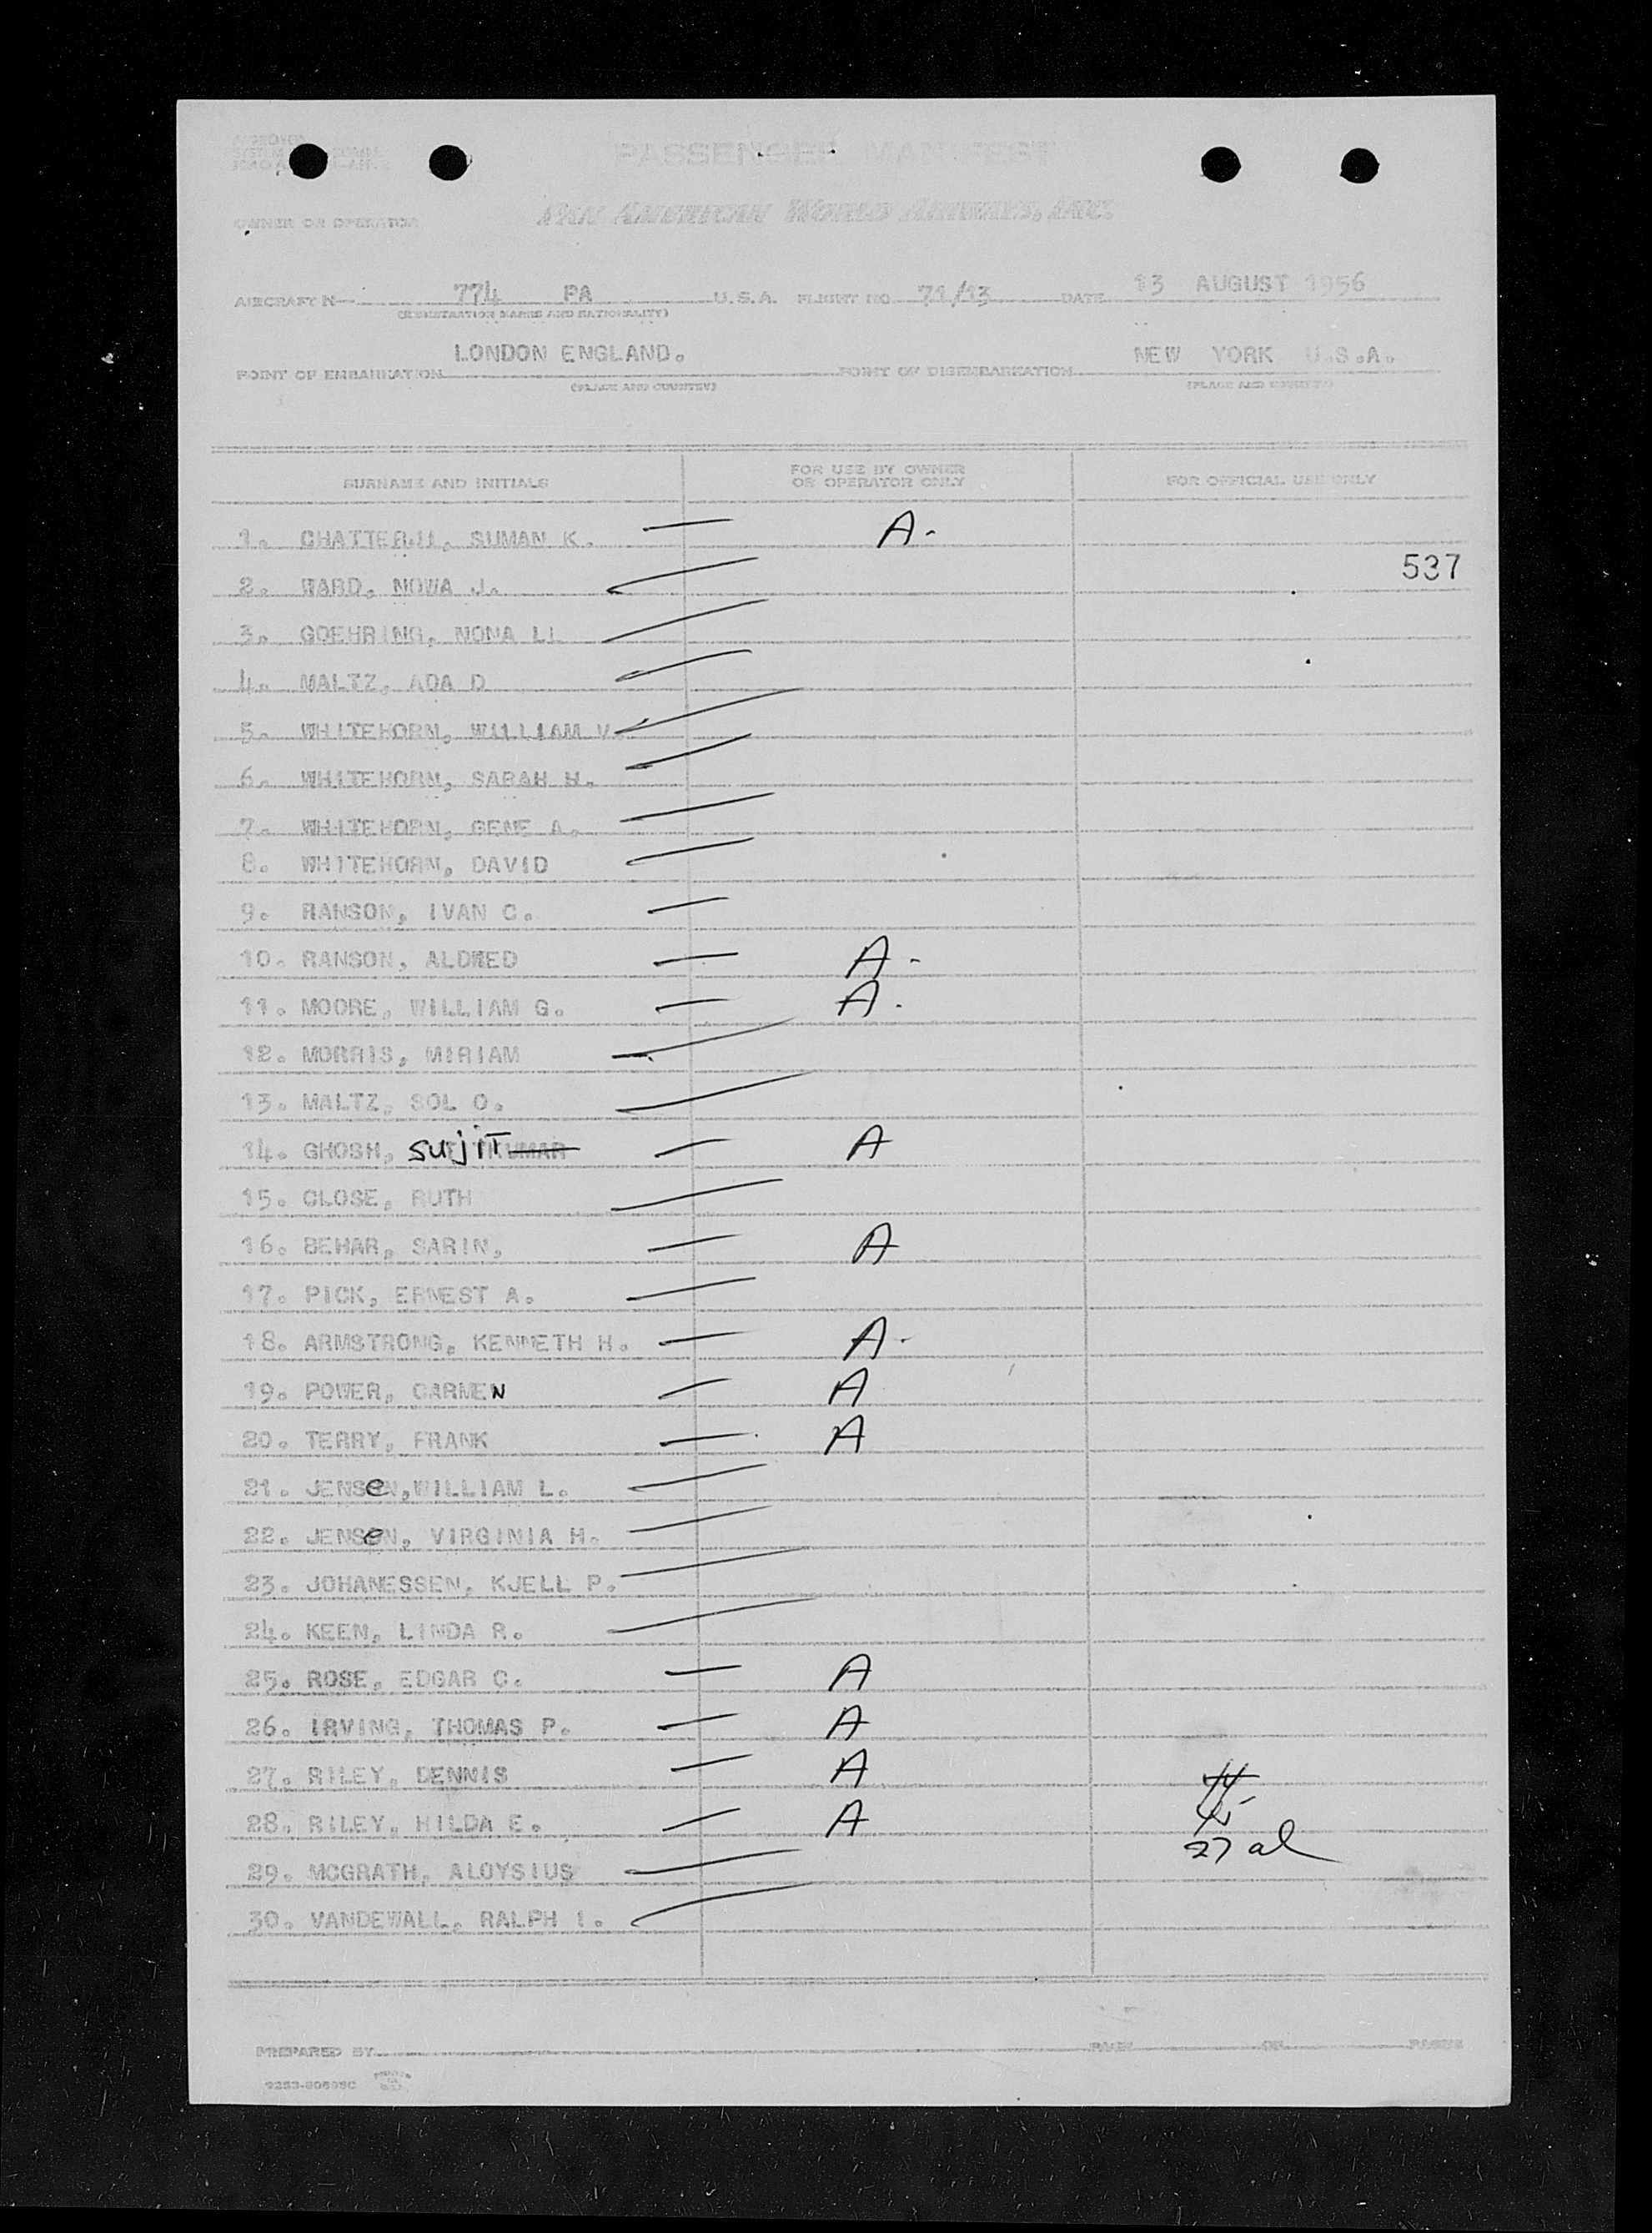 PASSENGER MANIFEST
OWNER OR OPERATOR PAN AMERICAN WORLD AIRWAYS, INC.
AIRCRAFT N- 774 PA U.S.A. FLIGHT NO. 71/13 DATE 13 AUGUST 1956
(REGISTRATION MARKS AND NATIONALITY)
LONDON ENGLAND. NEW YORK U.S.A.
POINT OF EMBARKATION POINT OF DISEMBARKATION
(PLACE AND COUNTRY) (PLACE AND COUNTRY)
SURNAME AND INITIALS FOR USE BY OWNER OR OPERATOR ONLY FOR OFFICIAL USE ONLY
1. CHATTERJI, SUMAN K. — A.
537
2. WARD, NOWA J.
3. GOEHRING, NONA LI
4. MALTZ, ADA D
5. WHITEHORN, WILLIAM V.
6. WHITEHORN, SARAH H.
7. WHITEHORN, GENE A.
8. WHITEHORN, DAVID
9. RANSON, IVAN C. —
10. RANSON, ALDRED — A.
11. MOORE, WILLIAM G. — A.
12. MORRIS, MIRIAM
13. MALTZ, SOL O.
14. GHOSH, SUJIT KUMAR — A
15. CLOSE, RUTH
16. BEHAR, SARIN, — A
17. PICK, ERNEST A.
18. ARMSTRONG, KENNETH H. — A.
19. POWER, CARMEN — A
20. TERRY, FRANK — A
21. JENSEN, WILLIAM L.
22. JENSEN, VIRGINIA H.
23. JOHANESSEN, KJELL P.
24. KEEN, LINDA R.
25. ROSE, EDGAR C. — A
26. IRVING, THOMAS P. — A
27. RILEY, DENNIS — A
28. RILEY, HILDA E. — A
27 al
29. MCGRATH, ALOYSIUS
30. VANDEWALL, RALPH I.
PREPARED BY PAGE OF PAGES